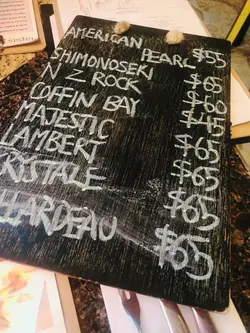 AMERICAN PEARL $55
SHIMONOSEKI $65
N Z ROCK $60
COFFIN BAY $45
MAJESTIC $65
LAMBERT $65
RYSTALE $65
LLARDEAU $65